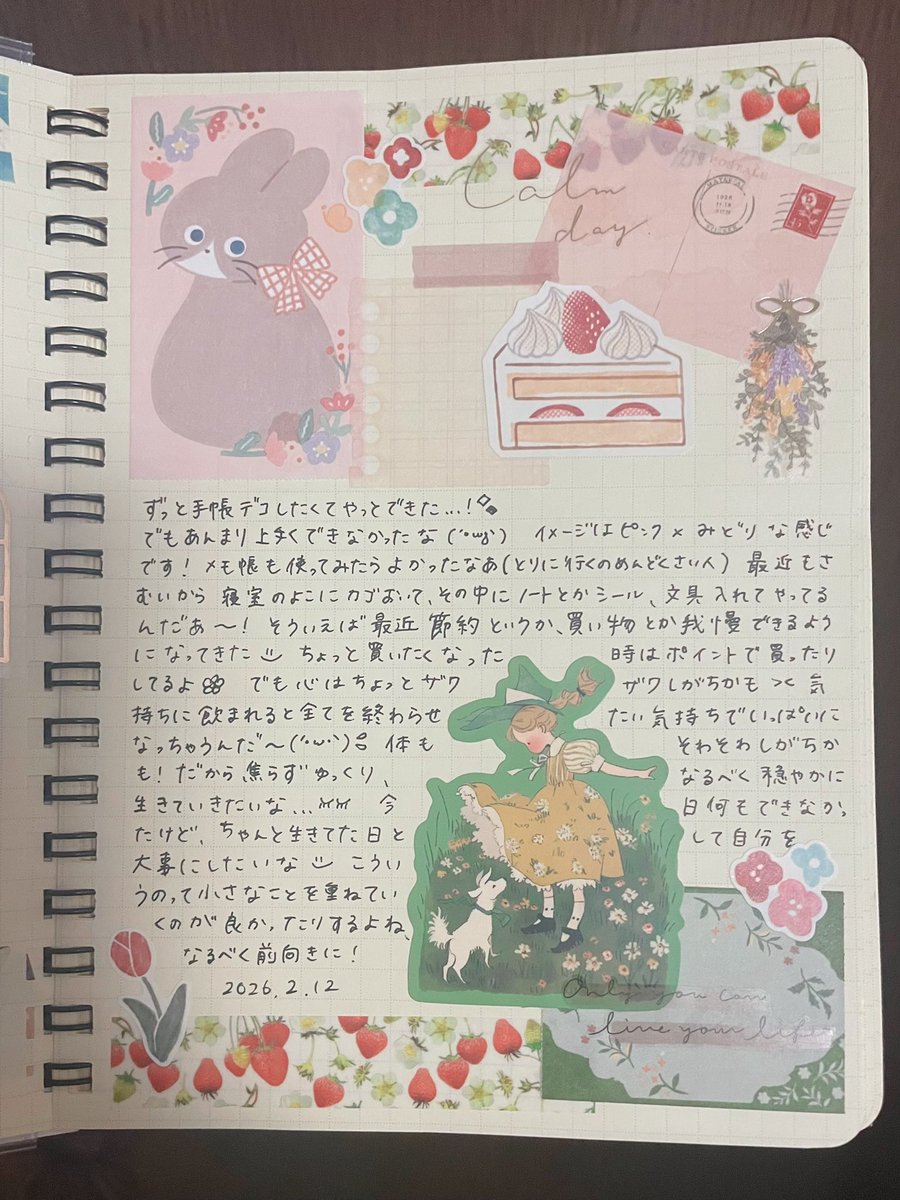 Calm
day.
CARTE POSTALE
1928
ずっと手帳デコしたくてやっとできた...!
でもあんまり上手くできなかったな(´•ω•`) イメージはピンク×みどりな感じ
です! メモ帳も使ってみたらよかったなあ(とりに行くのめんどくさい人) 最近もさ
むいから 寝室のよこにカゴおいて、その中にノートとかシール、文具入れてやってる
んだあ〜! そういえば最近 節約というか、買い物とか我慢できるよう
になってきた ちょっと買いたくなった 時はポイントで買ったり
してるよ でも心はちょっとザワ ザワしがちかも >< 気
持ちに飲まれると全てを終わらせ たい気持ちでいっぱいに
なっちゃうんだ〜(´•ω•`) 体も そわそわしがちか
も! だから焦らずゆっくり、 なるべく穏やかに
生きていきたいな... 今 日何もできなかっ
たけど、ちゃんと生きてた日と して自分を
大事にしたいな こうい
うのって小さなことを重ねてい
くのが良かったりするよね、
なるべく前向きに!
2026.2.12
Only you can
live your life